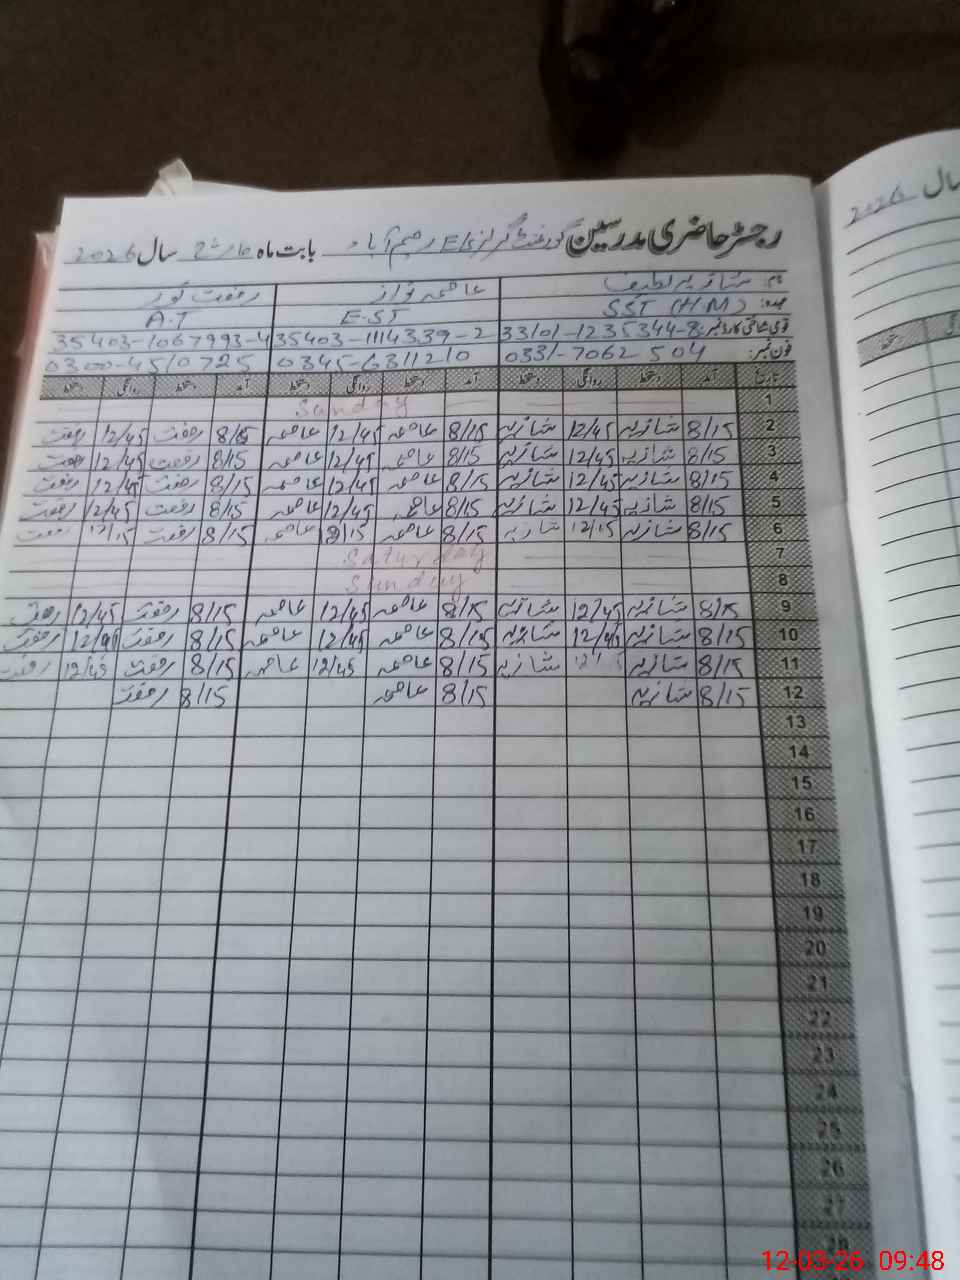 رجسٹر حاضری مدرسین گورنمنٹ گرلز E/S رحیم آباد بابت ماہ مارچ سال 2026
نام: شازیہ لطیف عاصمہ نواز رفعت نور
عہدہ: SST (H.M) E.ST A.T
قومی شناختی کارڈ نمبر: 33101-1235344-8 35403-1114339-2 35403-1067993-4
فون نمبر: 0331-7062504 0345-6311210 0300-4510725
تاریخ آمد دستخط روانگی دستخط آمد دستخط روانگی دستخط آمد دستخط روانگی دستخط
1 Sunday
2 8/15 شازیہ 12/45 شازیہ 8/15 عاصمہ 12/45 عاصمہ 8/15 رفعت 12/45 رفعت
3 8/15 شازیہ 12/45 شازیہ 8/15 عاصمہ 12/45 عاصمہ 8/15 رفعت 12/45 رفعت
4 8/15 شازیہ 12/45 شازیہ 8/15 عاصمہ 12/45 عاصمہ 8/15 رفعت 12/45 رفعت
5 8/15 شازیہ 12/45 شازیہ 8/15 عاصمہ 12/45 عاصمہ 8/15 رفعت 12/45 رفعت
6 8/15 شازیہ 12/15 شازیہ 8/15 عاصمہ عاصمہ 8/15 رفعت 12/15 رفعت
7 Saturday
8 Sunday
9 8/15 شازیہ 12/45 شازیہ 8/15 عاصمہ 12/45 عاصمہ 8/15 رفعت 12/45 رفعت
10 8/15 شازیہ 12/45 شازیہ 8/15 عاصمہ 12/45 عاصمہ 8/15 رفعت 12/45 رفعت
11 8/15 شازیہ شازیہ 8/15 عاصمہ 12/45 عاصمہ 8/15 رفعت 12/45 رفعت
12 8/15 شازیہ 8/15 عاصمہ 8/15 رفعت
13
14
15
16
17
18
19
20
21
22
23
24
25
26
27
28
سال 2026
دستخط
12-03-26 09:48